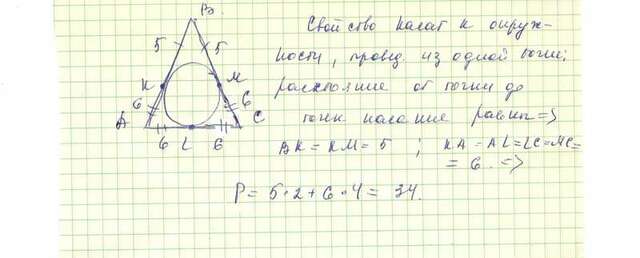 B
5 5
K M
6 6
A C
6 L 6
Свойство касат к окруж-
ности, провед. из одной точки:
расстояние от точки до
точек касание равны =>
BK = KM = 5 ; KA = AL = LC = MC =
= 6. =>
P = 5·2 + 6·4 = 34.